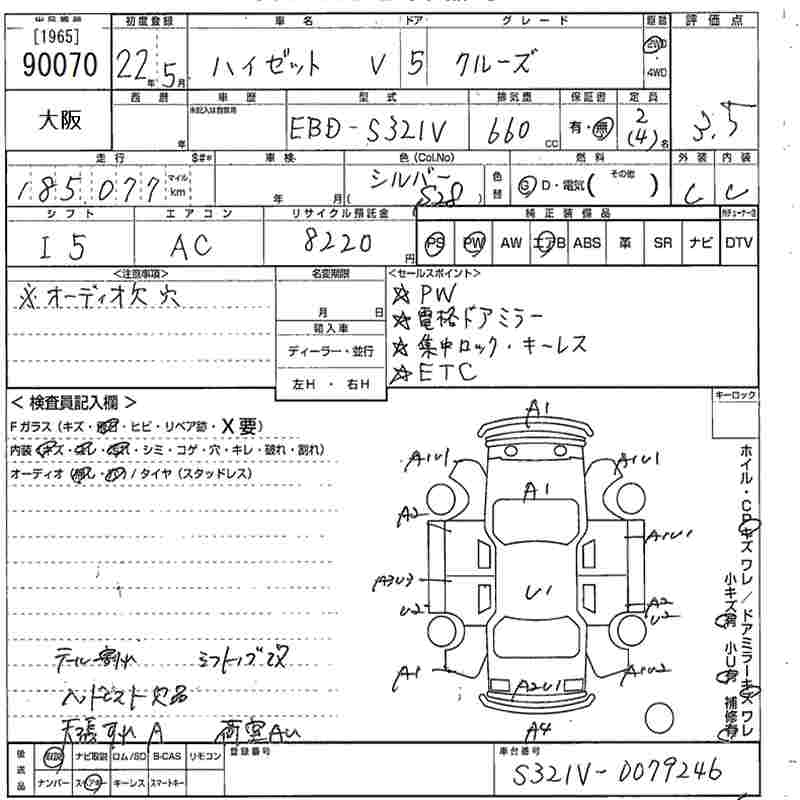 [1965]
90070
初度登録 車名 ドア グレード 駆動 評価点
22年 5月 ハイゼット V 5 クルーズ 2WD 4WD
大阪
西暦 車歴 型式 排気量 保証書 定員
年 未記入は自家用 EBD-S321V 660 CC 有・無 2(4)名
3.5
走行 $#* 車検 色(Col.No) 燃料 外装 内装
185,077 マイル km 年 月 シルバー ( S28 ) 色替 G D・電気( その他 ) C C
シフト エアコン リサイクル預託金 純正装備品
I5 AC 8220円 PS PW AW エアB ABS 革 SR ナビ DTV
<注意事項> 名変期限 <セールスポイント>
※オーディオ欠 穴
月 日
輸入車
ディーラー・並行
左H ・ 右H
☆PW
☆電格ドアミラー
☆集中ロック・キーレス
☆ETC
<検査員記入欄> キーロック
Fガラス(キズ・飛石・ヒビ・リペア跡・X要)
内装(キズ・汚れ・スレ・シミ・コゲ・穴・キレ・破れ・割れ)
オーディオ(無し・穴)/タイヤ(スタッドレス)
A1
A1U1 A1U1
A1
A2
A1U1
A3U3
U1
U2
A2
U2
A1 A1U2
A2U1
A4
ホイル・CPキズ ワレ / ドアミラーキズ ワレ
小キズ有 小U有 補修有
テール割れ シフトノブ改
ヘッドレスト欠品
天張すれ A 荷室AU
後送品 取説 ナビ取説 ロム/SD B-CAS リモコン
ナンバー スペアキー キーレス スマートキー
登録番号
車台番号
S321V-0079246